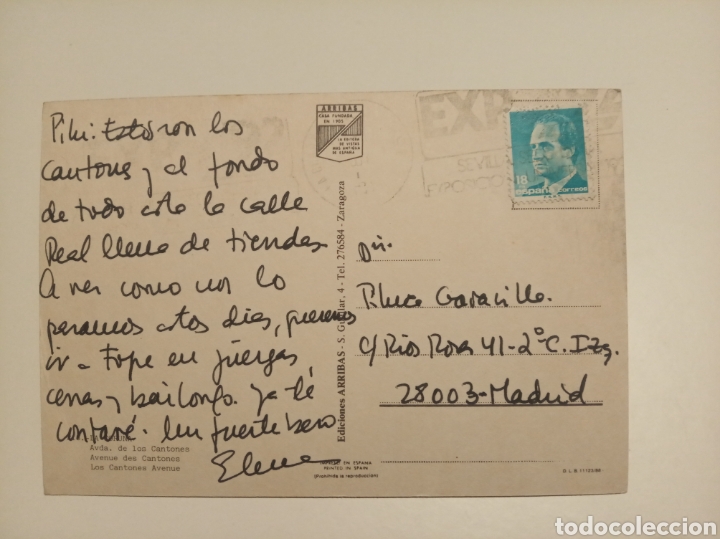 Pilu: Estos son los
Cantones y al fondo
de todo esta la calle
Real llena de tiendas
A ver como nos lo
pasamos estos dias, queremos
ir a tope en juergas
cenas y bailongo. Ya te
contaré. Un fuerte beso
Elena
Avda. de los Cantones
Avenue des Cantones
Los Cantones Avenue
ARRIBAS
CASA FUNDADA
EN 1905
LA EDITORA
DE VISTAS
MAS ANTIGUA
DE ESPAÑA
Ediciones ARRIBAS - S. 4 - Tel. 276584 - Zaragoza
IMPRESO EN ESPAÑA
PRINTED IN SPAIN
(Prohibida la reproducción)
EXP
SEVILLA
18
España correos
Piluca
c/ Rios Rosas 41-2°C. Izq.
28003-Madrid
todocoleccion